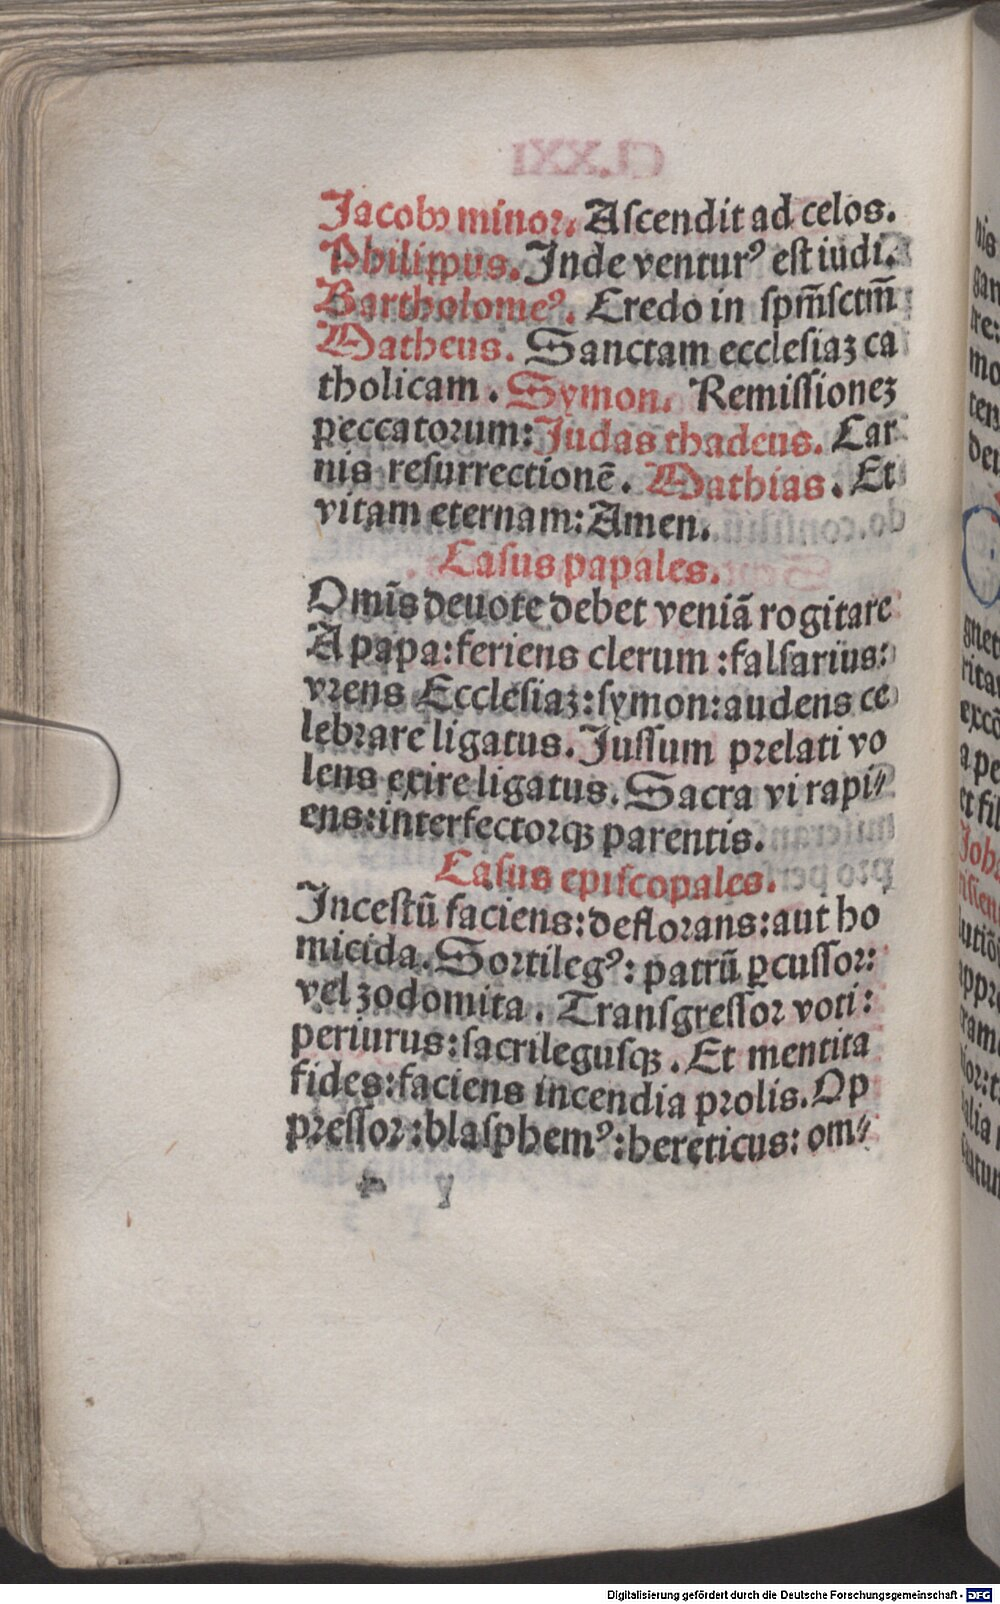 Jacobꝰ minoꝛ. Aſcendit ad celos.
Philippus. Inde venturꝰ eſt iudi.
Bartholomeꝰ. Credo in ſpm̄ ſctm̄
Matheus. Sanctam eccleſiaꝫ ca
tholicam. Symon. Remiſſioneꝫ
peccatoꝛum: Judas thadeus. Car
nis reſurrectionē. Mathias. Et
vitam eternam: Amen.
Caſus papales.
Omīs deuote debet veniā rogitare
A papa: feriens clerum: falſarius:
vꝛens Eccleſiaꝫ: ſymon: audens ce
lebꝛare ligatus. Juſſum pꝛelati vo
lens exire ligatus. Sacra vi rapi⸗
ens: interfectoꝛqꝫ parentis.
Caſus epiſcopales.
Inceſtū faciens: defloꝛans: aut ho
micida. Soꝛtilegꝰ: patrū ꝑcuſſoꝛ:
vel ꝫodomita. Tranſgreſſoꝛ voti:
periurus: ſacrileguſqꝫ. Et mentita
fides: faciens incendia pꝛolis. Op
pꝛeſſoꝛ: blaſphemꝰ: hereticus: om⸗
y
nis
gan
tres:
mo
ten
der
gnet
rita
excō
a pe
et fil
Joh
Digitalisierung gefördert durch die Deutsche Forschungsgemeinschaft - DFG